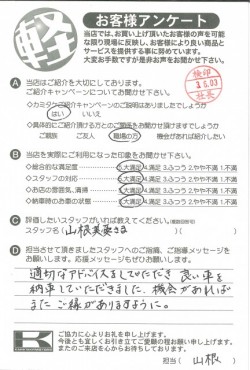 軽
お客様アンケート
当店では、お買い上げ頂いたお客様の声を可能
な限り現場に反映し、お客様により良い商品と
サービスを提供する事に努めています。
大変お手数ですが是非お声をお聞かせ下さい。
検印
3.5.03
A 当店はご紹介を大切にしております。
ご紹介キャンペーンについてお聞かせ下さい。
◇カミタケご紹介キャンペーンのご説明はありましたでしょうか
はい いいえ
◇具体的にご紹介頂ける方とのご関係をお聞かせ頂けますでしょうか
ご親族 ご友人 職場の方 機会があれば紹介したい
B 当店を実際にご利用になった印象をお聞かせ下さい。
◇総合的な満足度 5.大満足 4.満足 3.ふつう 2.やや不満 1.不満
◇スタッフの対応 5.大満足 4.満足 3.ふつう 2.やや不満 1.不満
◇お店の雰囲気、清掃 5.大満足 4.満足 3.ふつう 2.やや不満 1.不満
◇納車時のお車の状態 5.大満足 4.満足 3.ふつう 2.やや不満 1.不満
C 評価したいスタッフがいれば教えてください。(複数回答可)
スタッフ名( 山根 さま )( )
D 担当させて頂きましたスタッフへのご感想、ご指導メッセージを
お願いします。応援メッセージもぜひお願いします！
適切なアドバイスをしていただき 良い車を
納車していただきました。機会があれば
またご縁がありますように。
K
ご協力に心よりお礼を申し上げます。
今後とも宜しくお引き立てご愛顧の程お願い申し上げます。
またのご来店を心からお待ちしております。
担当( 山根 )